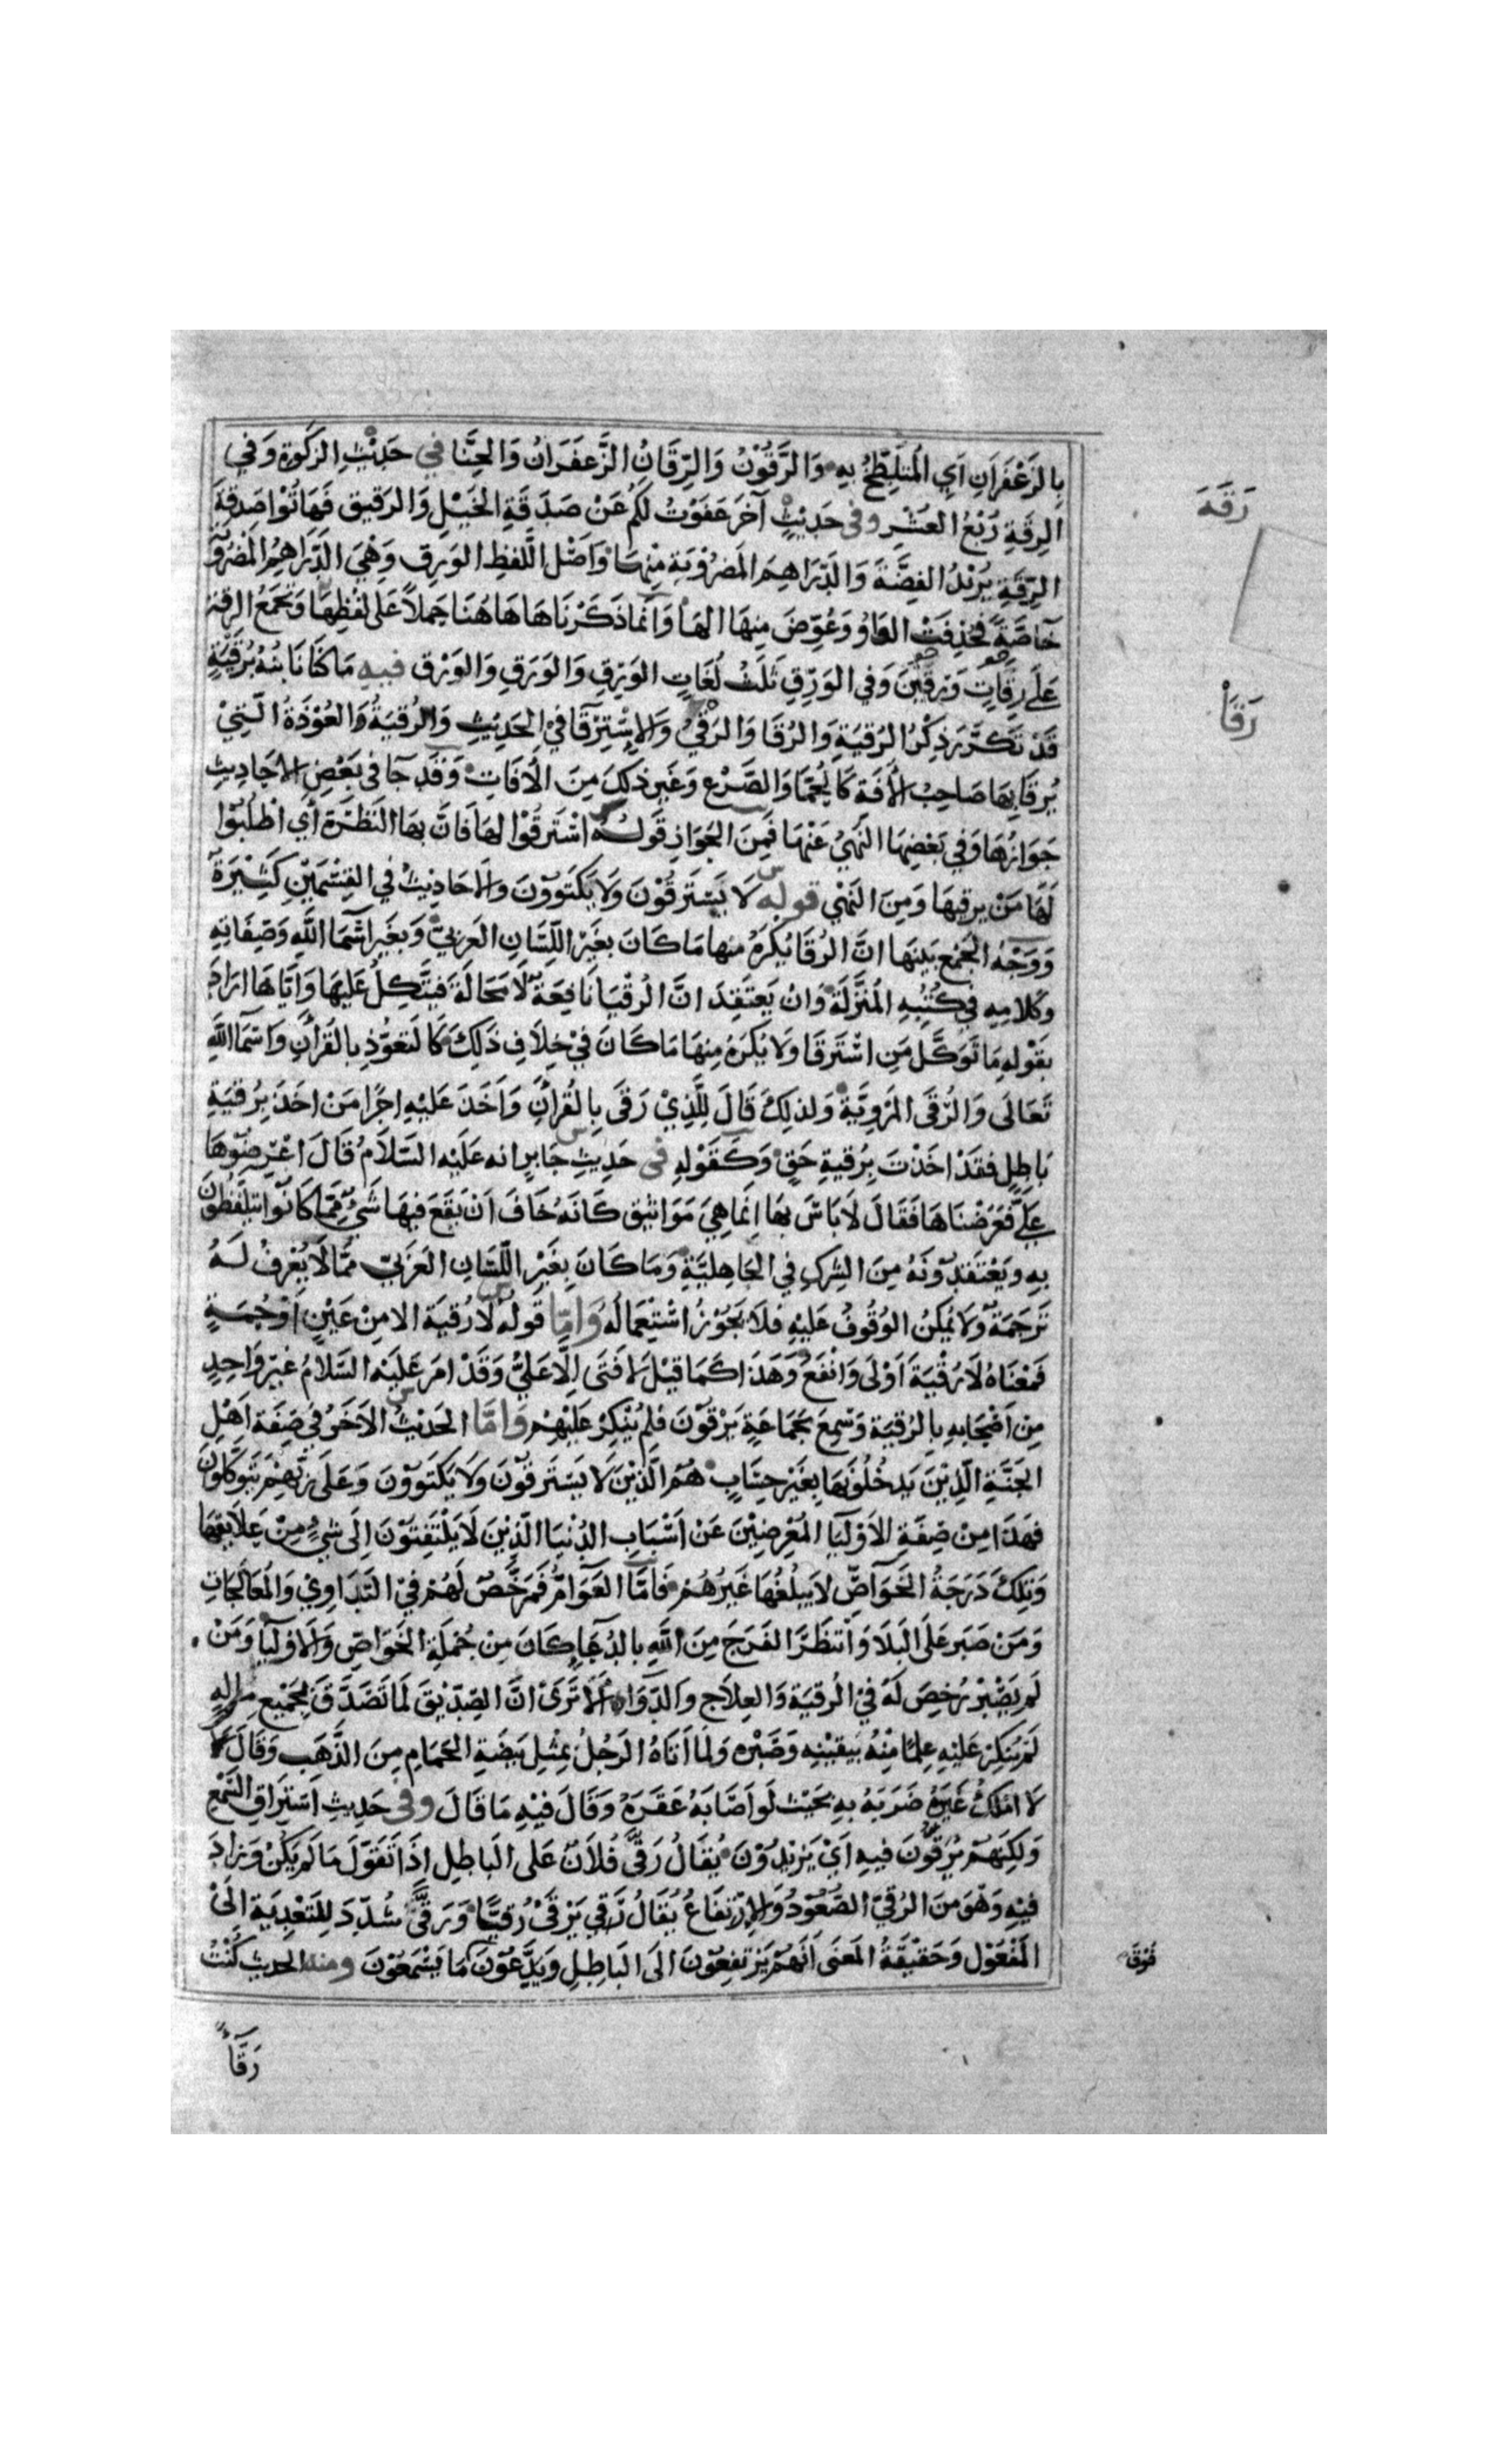 بِالزَعْفَرَانِ اَيِ الْمُتَلَطِّخُ بِهِ وَالرَّقُوْنُ وَالرِّقَانُ الزَّعفَرَانُ وَالحِنَّا في حَدِيْثِ الزَكٰوةِ وَفي
الرِقَةِ رُبْعُ العُشْرِ وفى حَدِيْثٍ آخَرَ عَفَوْتُ لَكُم عَنْ صَدَقَةِ الخَيْلِ وَالرَقيقِ فَهَاتُوْا صَدقةَ
الرِّقَةِ يُرِيْدُ الفِضَّةَ وَالدَّرَاهِمَ المَضرُوْبَةِ مِنْهَا وَاَصْل اللَّفظِ الوَرِقِ وَهْيَ الدَّرَاهِمُ المَضرُوبَة
خَاصَّةً فَحُذِفَتْ الوَاوُ وَعُوِّضَ مِنهَا الهَا وَاَنمَا ذَكَرْنَاهَا هَاهُنَا حَملاً عَلى لَفظِهَا وَتُجْمَعُ الرِقة
عَلَى رِقَاتٍ وَرِقِيْنَ وَفي الوَرِقِ ثَلَثُ لُغَاتٍ الوَرِقِ وَالوَرَقِ وَالوَرْقِ فيهِ مَا كُنَّا نَابُنُهُ بُرُقيَةٍ
قَدْ تَكَرَّرَ ذِكْرُ الرُقيَةِ وَالرُقَا وَالرَقْيُ وَالاِسْتِرْقَا فيِ الحَدِيثِ وَالرُقيَةُ وَالعُوْذَةُ الَّتِيْ
يُرقَا بِهَا صَاحِبُ الاٰفَةِ كَالحُمَّا وَالصَّرْعِ وَغَيرِ ذلكَ مِنَ الاٰفَاتِ وَقَد جَآ في بَعْضِ الاَحَادِيثِ
جَوَازُهَا وَفي بَعْضِهَا النَهيُ عَنْهَا فَمِنَ الجَوَازِ قَولُهُ اسْتَرقُوْا لهَا فَانَّ بهَا النَظرَة أي اطلُبُوا
لَهَا مَنْ يرقيهَا وَمِنَ النَهْي قوله لَا يَسْتَرقُوْنَ وَلَا يَكتَوُوْنَ وَالاَحَادِيْثُ في القِسْمَيْنِ كَثِيْرَة
وَوَجْهُ الجَمْعِ بَينَهَا انَّ الرُقَا يُكرَهُ منها مَا كَانَ بغَيْرِ اللِّسَانِ العَرَبيِّ وَبغَيرِ اسْمَا اللَّهِ وَصِفَاتِهِ
وَكَلامِهِ في كُتُبِهِ المُنَزَّلَة وَانْ يَعتَقِدَ انَّ الرُقْيَا نَافِعَة لَا مَحَالَةَ فَيَتَّكِلُ عَليَهَا وَاِيَّاهَا ارَادَ
بقَوْلهِ مَا تَوَكَّلَ مَنِ اسْتَرقَا وَلَا يُكرَهُ مِنهَا مَا كَانَ فيْ خِلَافِ ذَلِكَ كَالتَعَوُّذِ بِالقُرآنِ وَاسْمَآ اللَّهِ
تَعَالَى وَالرُّقَى المَروِيَّةِ وَلذلِكَ قَالَ لِلَّذِيْ رَقَى بِالقُرآنِ وَاَخَذَ عَليْهِ اجرًا مَنْ اخَذَ بِرُقيَةِ
بَاطِلٍ فقَدْ اخَذْتَ بِرُقيةِ حَقٍّ وَكَقَوْلهِ فى حَدِيثِ جَابرٍ انه عَلَيْه السَلَامُ قَالَ اعْرِضُوْهَا
عَلَيَّ فَعَرَضْنَاهَا فَقَالَ لَا بَاسَ بهَا اِنمَا هِيَ مَوَاثِيْق كَانَهُ خَافَ اَنْ يَقَعَ فيهَا شَيْ مِمَّا كَانُوا يَتَلَفَّظُونَ
بِهِ وَيَعْتَقِدُونَهُ مِنَ الشِركِ في الجَاهِليَّةِ وَمَا كَانَ بِغَيْرِ اللِّسَانِ العَرَبيّ مِمَّا لَا يُعْرفُ لَهُ
تَرجَمَةٌ وَلَا يُمكِنُ الوُقُوفُ عَلَيْهِ فَلَا يَجُوْزُ اسْتِعمَالُهُ وَامَّا قَولُهُ لَا رُقيَةَ الا مِنْ عَيْنٍ اَوْ حُمَةٍ
فَمَعْنَاهُ لَا رُقْيَةَ اَوْلَى وَانْفَعُ وَهَذَا كَمَا قيْلَ لَا فَتَى اِلَّا عَليٌّ وَقَدْ امَرَ عَلَيْه السَّلامُ غيرَ وَاحِدٍ
مِنْ اَصْحَابِهِ بِالرُقيَةِ وَسَمِعَ بجَمَاعَةٍ يَرْقُوْنَ فلم يُنْكِرْ عَليْهِمْ وَامَّا الحَدِيْثُ الاٰخَرُ في صِفَةِ اَهْلِ
الجَنَّةِ الَّذِيْنَ يَدخُلُونَهَا بِغَيْرِ حِسَابٍ هُمُ الَّذِيْنَ لَا يَسْتَرقُوْنَ وَلَا يَكتَوُوْنَ وَعَلَى رَبِّهِمْ يَتَوَكَّلُوْنَ
فهَذَا مِنْ صِفَةِ الاَوْليَآ المُعْرِضِيْنَ عَنْ اَسْبَابِ الدُنْيَا الَّذِيْنَ لَا يَلْتَفِتُوْنَ اِلَى شَيْءٍ مِنْ عَلَايِقِهَا
وَتِلكَ دَرَجَةُ الخَوَاصِّ لَا يَبلُغُهَا غَيْرُهُمْ فَامَّا العَوَامُّ فَمُرَخَّصٌ لَهُمْ فيْ التَدَاوِيْ وَالمُعَالَجَاتِ
وَمَنْ صَبَر عَلَى البَلَا وَانْتَظَرَ الفَرَجَ مِنَ اللَّهِ بِالدُعَآءِ كَانَ مِنْ جُمْلَةِ الخَوَاصِّ وَالاَوليَا وَمَنْ
لَم يَصْبِرْ رُخِّصَ لَهُ فيْ الرُقيَة وَالعِلَاجِ وَالدَّوَاءِ الا تَرَىْ انَّ الصِدّيْقَ لَمَا تَصَدَّقَ بِجَمْيعِ مَالِهِ
لَمْ يُنكِرْ عَليْهِ عِلمًا مِنْهُ بِيَقيْنِهِ وَصَبْرِه وَلَمَا اَتَاهُ الرَجُلُ بمِثْلِ بَيضَةِ الحَمَامِ مِنَ الذَّهَبِ وَقَالَ
لَا امْلكُ غَيرَهُ ضَرَبَهُ بهِ بحَيْث لَو اَصَابَهُ عَقَرَهُ وَقَالَ فيْهِ مَا قَالَ وفى حَدِيثِ اسْتِرَاقِ السَّمْعِ
وَلكِنَهُمْ يُرَقُّونَ فيهِ اَيْ يَزِيْدُوْنَ يُقَالُ رَقَّى فُلَانٌ عَلى البَاطِلِ اذَا تَقَوَّلَ مَا لَم يَكُنْ وَزَادَ
فيْهِ وَهْوَ مِنَ الرُقيّ الصُّعُوْدُ وَالاِرْتِفَاعُ يُقَالُ رَقي يَرْقَىْ رُقيًّا وَرَقَّى شُدِّدَ لِلتَعْدِيَةِ الَىْ
المَفْعُوْل وَحَقيْقَةُ المَعنَى اَنَّهُمْ يَرْتَفِعُوْنَ الَى البَاطِلِ وَيَدَّعُوْنَ مَا يَسْمَعُوْنَ ومنه الحديث كُنْتُ
رَقَّآءً
رَقَهَ
رَقَأ
فَوْقَ